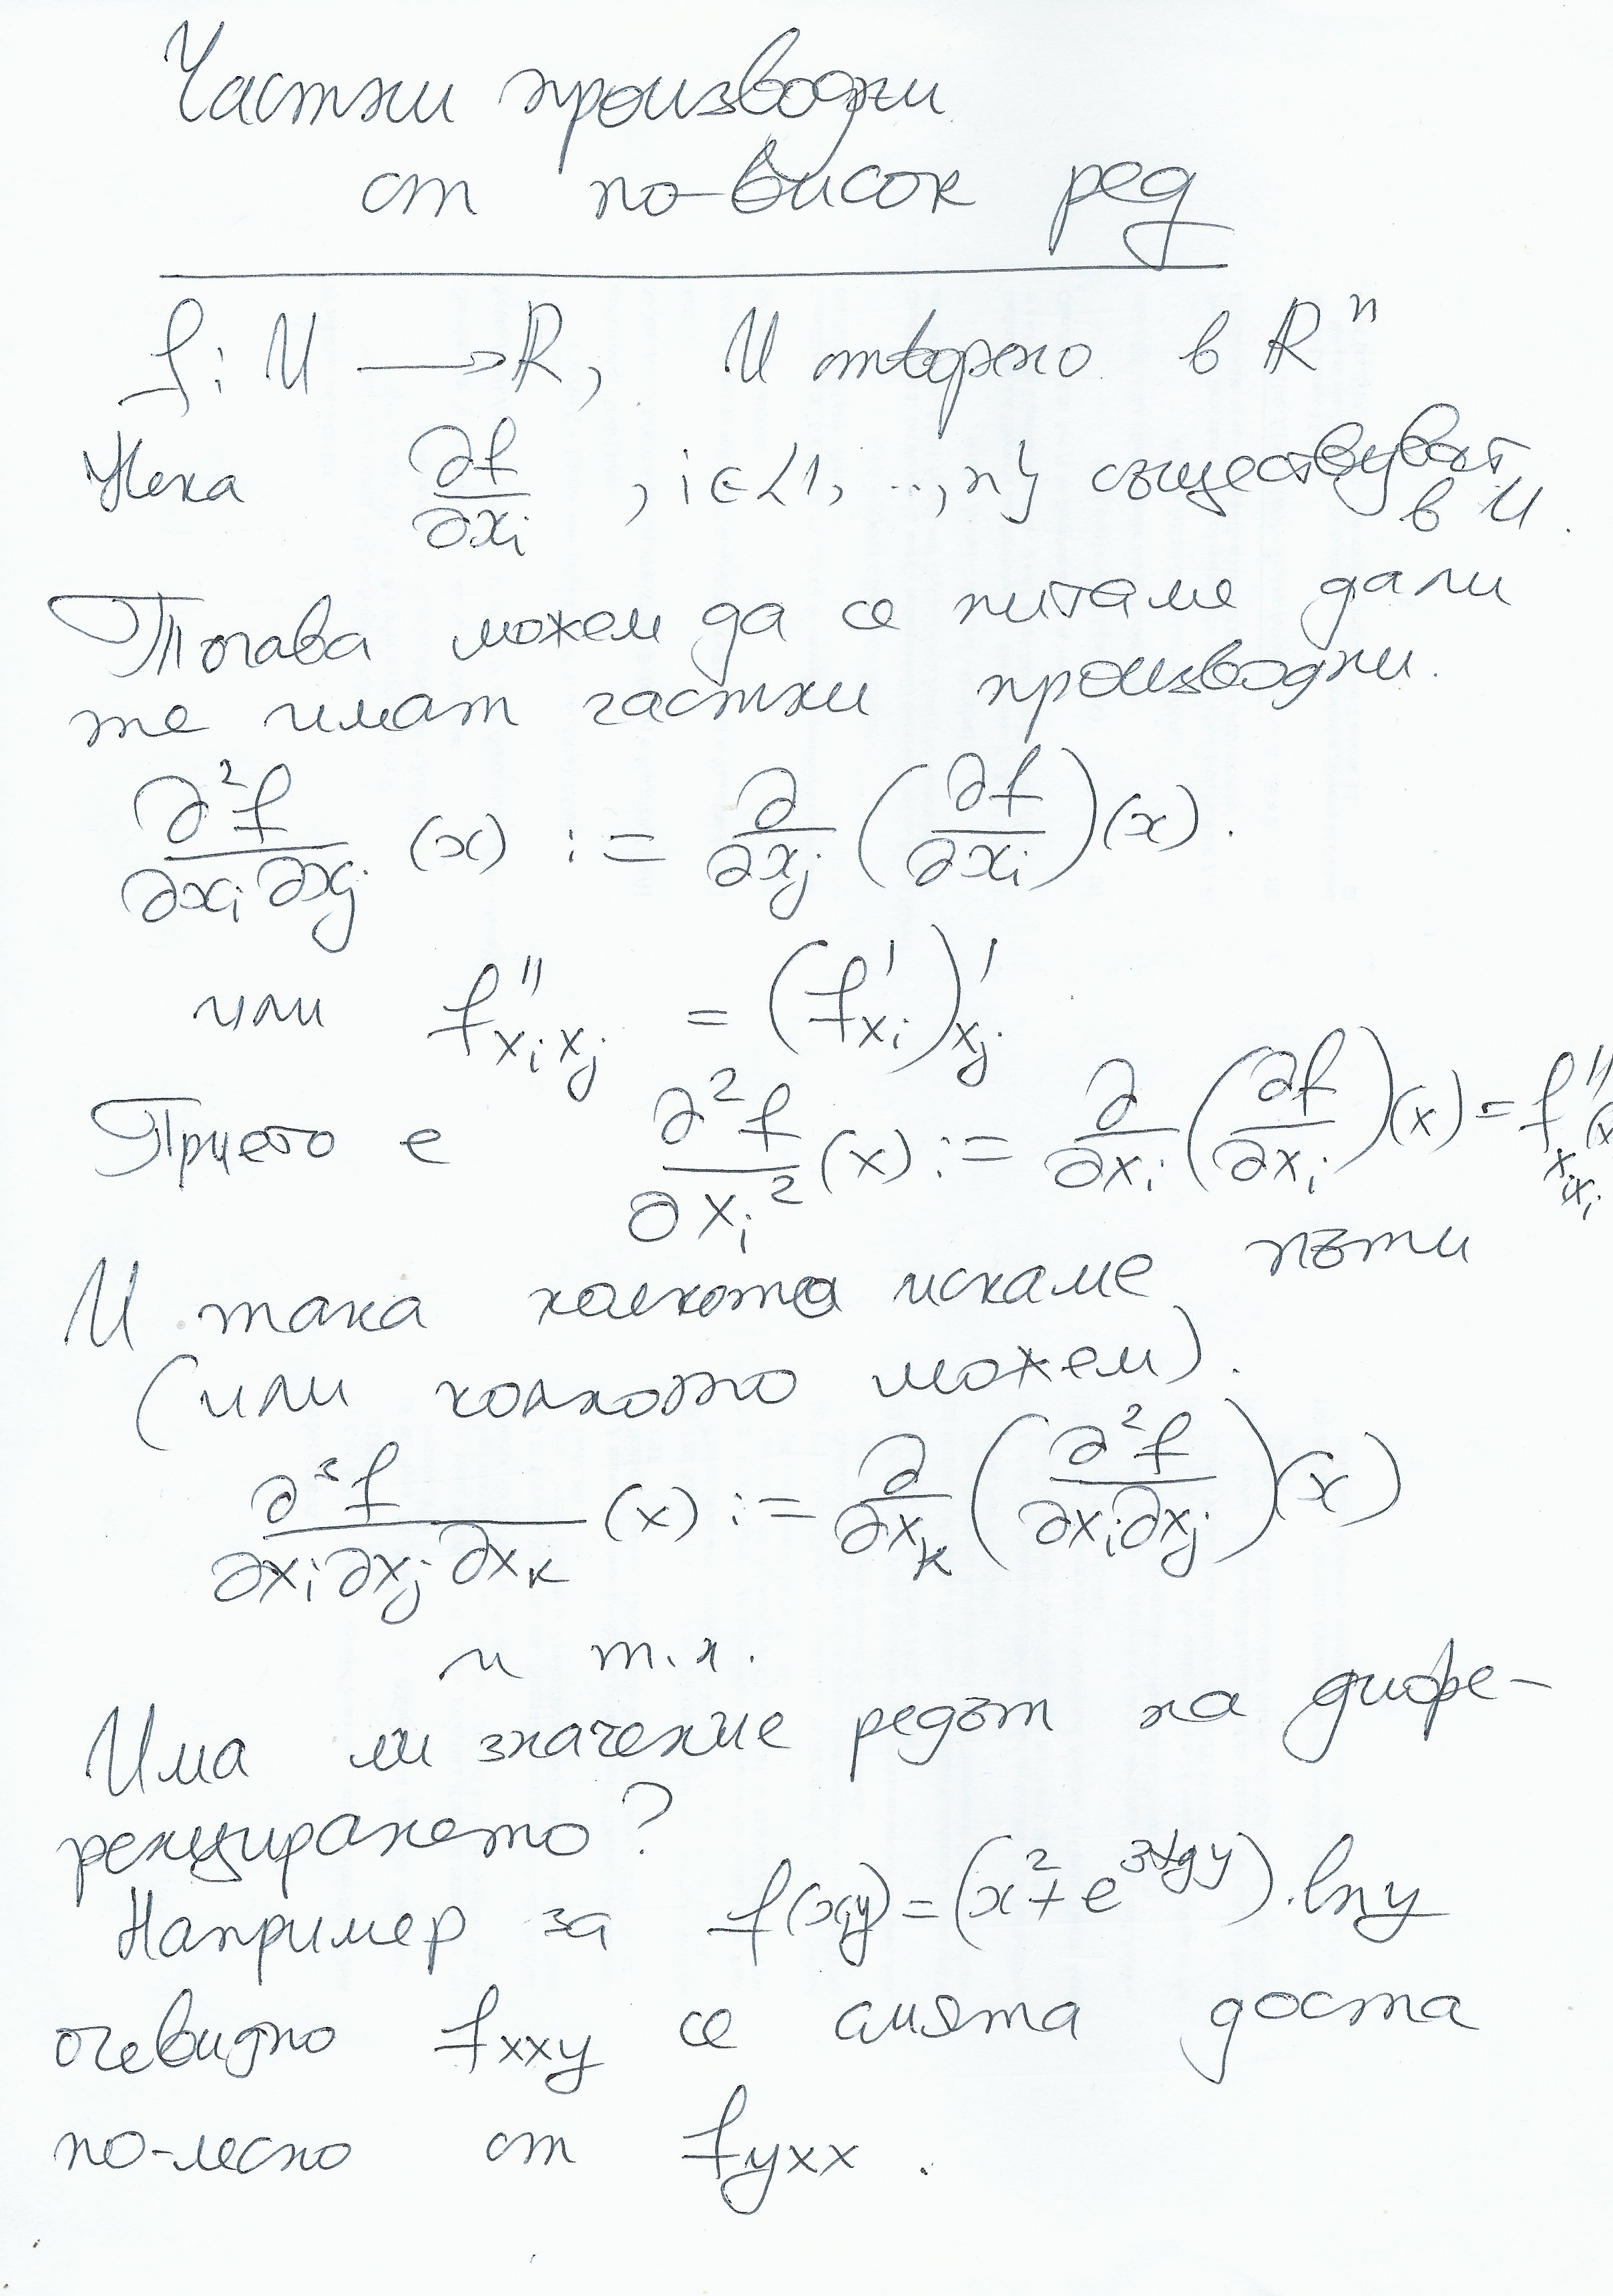 Частни производни
от по-висок ред
f: U → ℝ, U отворено в ℝⁿ
Нека ∂f/∂xᵢ , i ∈ {1, ..., n} съществуват
в U.
Тогава можем да се питаме дали
те имат частни производни.
∂²f/∂xᵢ∂xⱼ (x) := ∂/∂xⱼ (∂f/∂xᵢ)(x).
или f''xᵢxⱼ = (f'xᵢ)'xⱼ
Прието е ∂²f/∂xᵢ² (x) := ∂/∂xᵢ (∂f/∂xᵢ)(x) = f''xᵢxᵢ(x
И така колкото искаме пъти
(или колкото можем).
∂³f/∂xᵢ∂xⱼ∂xₖ (x) := ∂/∂xₖ (∂²f/∂xᵢ∂xⱼ)(x)
и т.н.
Има ли значение редът на дифе-
ренцирането?
Например за f(x,y) = (x² + e^(3tgy)).lny
очевидно fxxy се смята доста
по-лесно от fyxx .